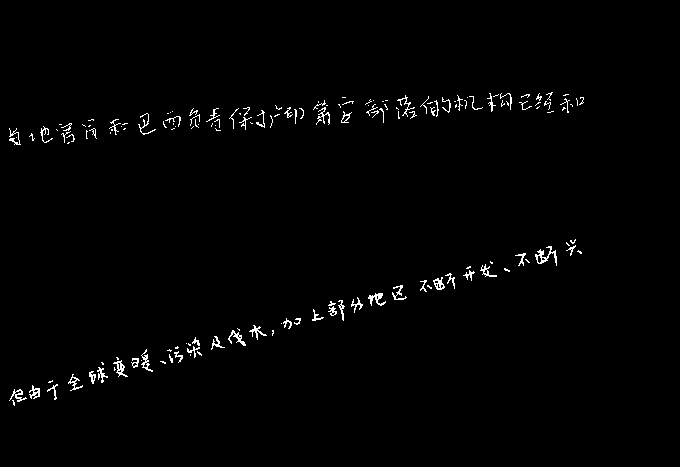 当地官员和巴西负责保护印第安部落的机构已经和
但由于全球变暖、污染及伐木,加上部分地区不断开发、不断兴